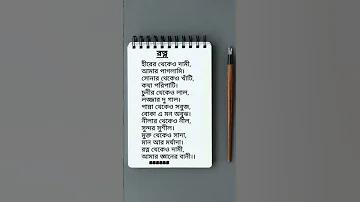 রত্ন
হীরের থেকেও দামী,
আমার পাগলামি।
সোনার থেকেও খাঁটি,
কথা পরিপাটি।
চুনীর থেকেও লাল,
লজ্জার দু গাল।
পান্না থেকেও সবুজ,
বোকা এ মন অবুঝ।
নীলার থেকেও নীল,
সুন্দর সুশীল।
মুক্ত থেকেও সাদা,
মান আর মর্যাদা।
রত্ন থেকেও দামী,
আমার জ্ঞানের বানী।।